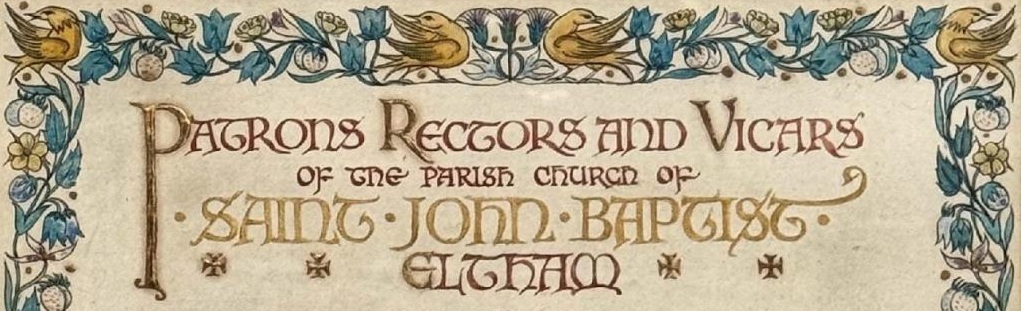 PATRONS RECTORS AND VICARS
OF THE PARISH CHURCH OF
· SAINT · JOHN · BAPTIST ·
ELTHAM